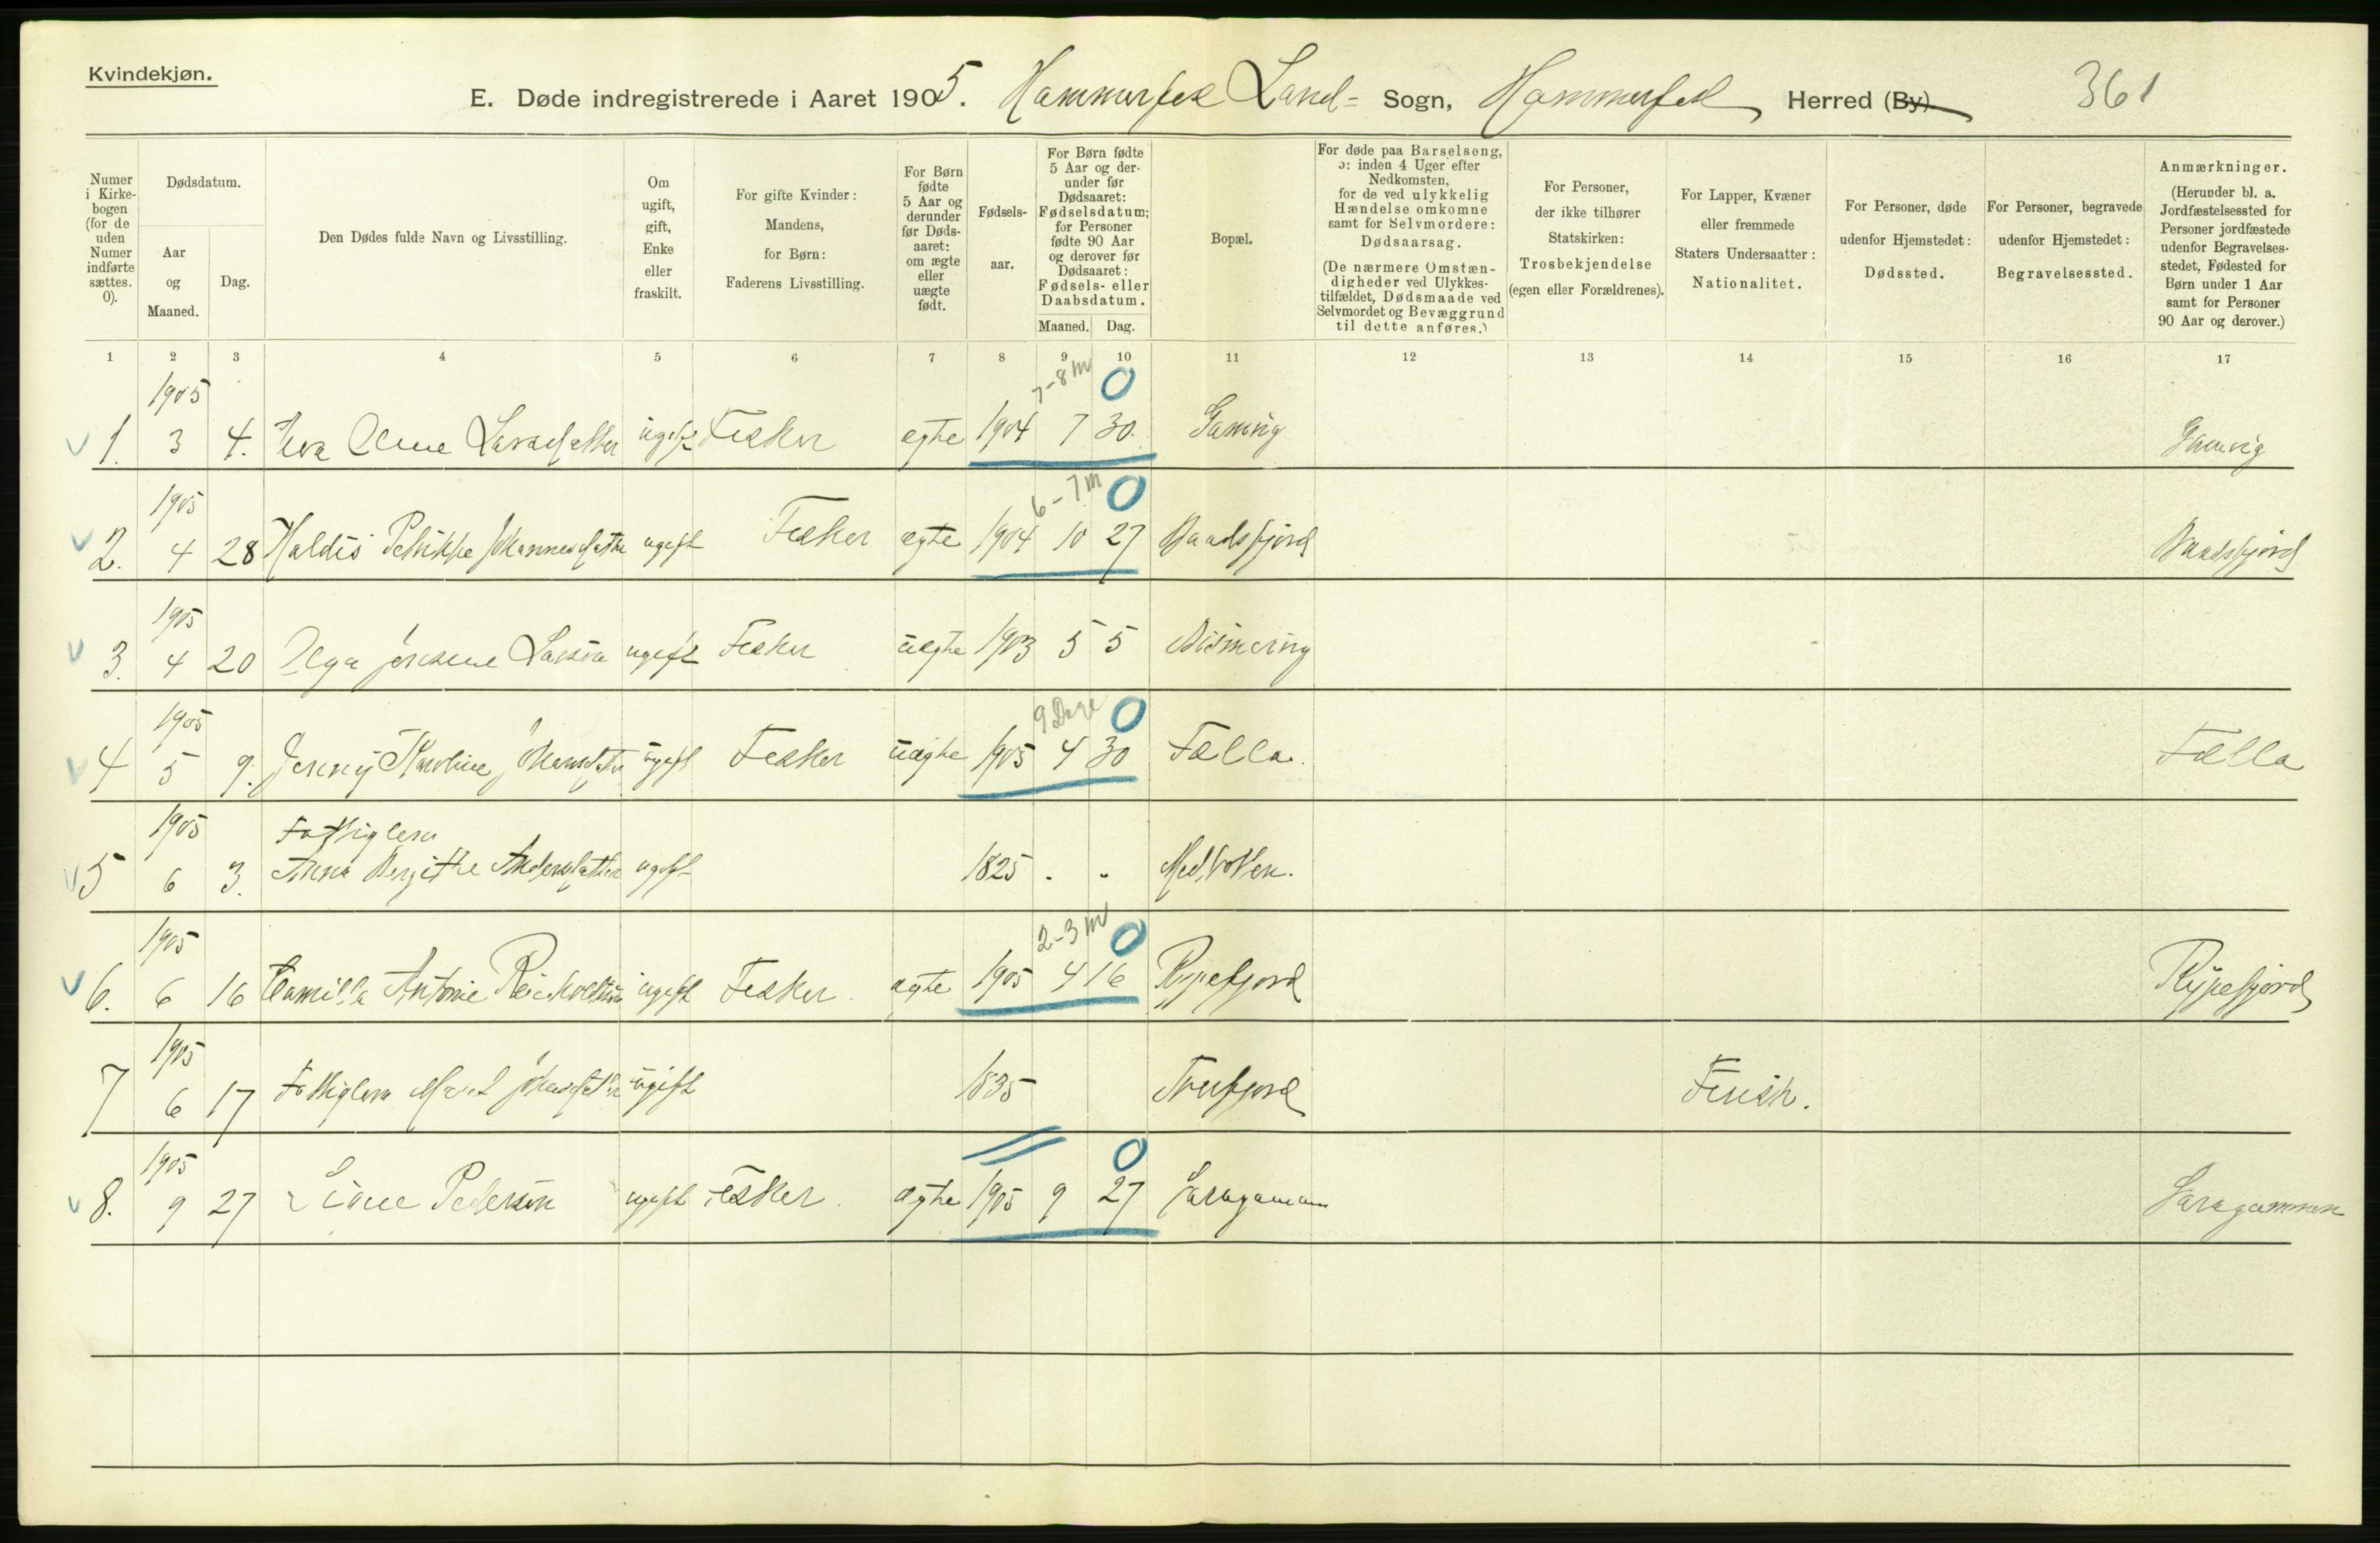 Kvindekjøn.
E. Døde indregistrerede i Aaret 1905. Hammerfest Land- Sogn, Hammerfest Herred (By) 361
Numer i Kirkebogen (for de uden Numer indførte sættes. 0).
Dødsdatum.
Aar og Maaned.
Dag.
Den Dødes fulde Navn og Livsstilling.
Om ugift, gift, Enke eller fraskilt.
For gifte Kvinder: Mandens, for Børn: Faderens Livsstilling.
For Børn fødte 5 Aar og derunder før Dødsaaret: om ægte eller uægte født.
Fødselsaar.
For Børn fødte 5 Aar og derunder før Dødsaaret: Fødselsdatum; for Personer fødte 90 Aar og derover før Dødsaaret: Fødsels- eller Daabsdatum.
Maaned. Dag.
Bopæl.
For døde paa Barselseng, ɔ: inden 4 Uger efter Nedkomsten, for de ved ulykkelig Hændelse omkomne samt for Selvmordere: Dødsaarsag.
(De nærmere Omstændigheder ved Ulykkestilfældet, Dødsmaade ved Selvmordet og Bevæggrund til dette anføres.)
For Personer, der ikke tilhører Statskirken: Trosbekjendelse (egen eller Forældrenes).
For Lapper, Kvæner eller fremmede Staters Undersaatter: Nationalitet.
For Personer, døde udenfor Hjemstedet: Dødssted.
For Personer, begravede udenfor Hjemstedet: Begravelsessted.
Anmærkninger.
(Herunder bl. a. Jordfæstelsessted for Personer jordfæstede udenfor Begravelsesstedet, Fødested for Børn under 1 Aar samt for Personer 90 Aar og derover.)
1 2 3 4 5 6 7 8 9 10 11 12 13 14 15 16 17
1905 7-8 m 0
1. 3 4. ugift Fisker ægte 1904 7 30. Gamvig
1905 6-7 m 0
2. 4 28 Haldis ugift Fisker ægte 1904 10 27 Baadsfjord Baadsfjord
1905
3. 4 20 Olga Larsen ugift Fisker uægte 1903 5 5
1905 9 Dage 0
4 5 9. Jenny Karoline ugift Fisker uægte 1905 4 30 Fælla. Fælla
1905 Fattiglem
5 6 3. Anna Bergithe Andersdatter ugift 1825 . .
1905 2-3 m 0
6. 6 16 Camilla Antonie ugift Fisker ægte 1905 4 16 Rypefjord Rypefjord
1905
7 6 17 Fattiglem ugift 1835
1905 0
8. 9 27 Pedersen ugift Fisker ægte 1905 9 27 Saragammen